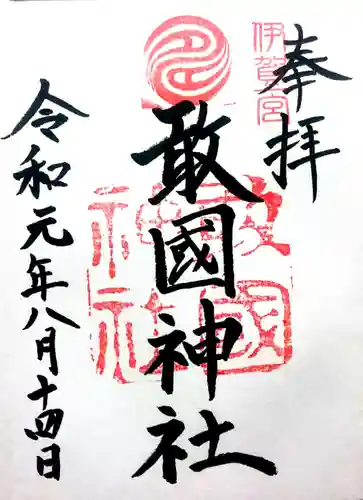 伊賀一宮
奉拝
敢國神社
敢國神社
令和元年八月十四日